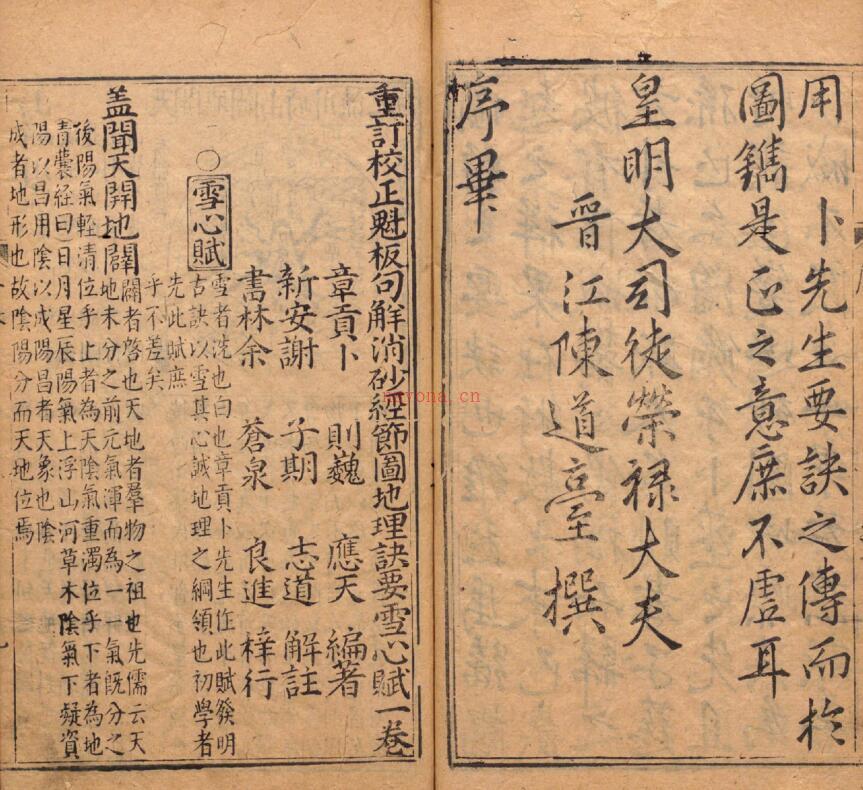 用卜先生要訣之傳而於
圖鐫是正之意庶不虛耳
皇明大司徒榮祿大夫
晉江陳道臺撰
序畢
重訂校正魁板句解消砂經節圖地理訣要雪心賦一卷
章貢卜 則巍 應天 編著
新安謝 子期 志道 解註
書林余 蒼泉 良進 梓行
○雪心賦
雪者洗也白也章貢卜先生作此賦發明
古訣以雪其心誠地理之綱領也初學者
先此賦庶
乎不差矣
蓋聞天開地闢
闢者啓也天地者羣物之祖也先儒云天
地未分之前元氣渾而為一一氣既分之
後陽氣輕清位乎上者為天陰氣重濁位乎下者為地
青囊經曰日月星辰陽氣上浮山河草木陰氣下凝資
陽以昌用陰以成陽昌者天象也陰
成者地形也故陰陽分而天地位焉
nayona.cn